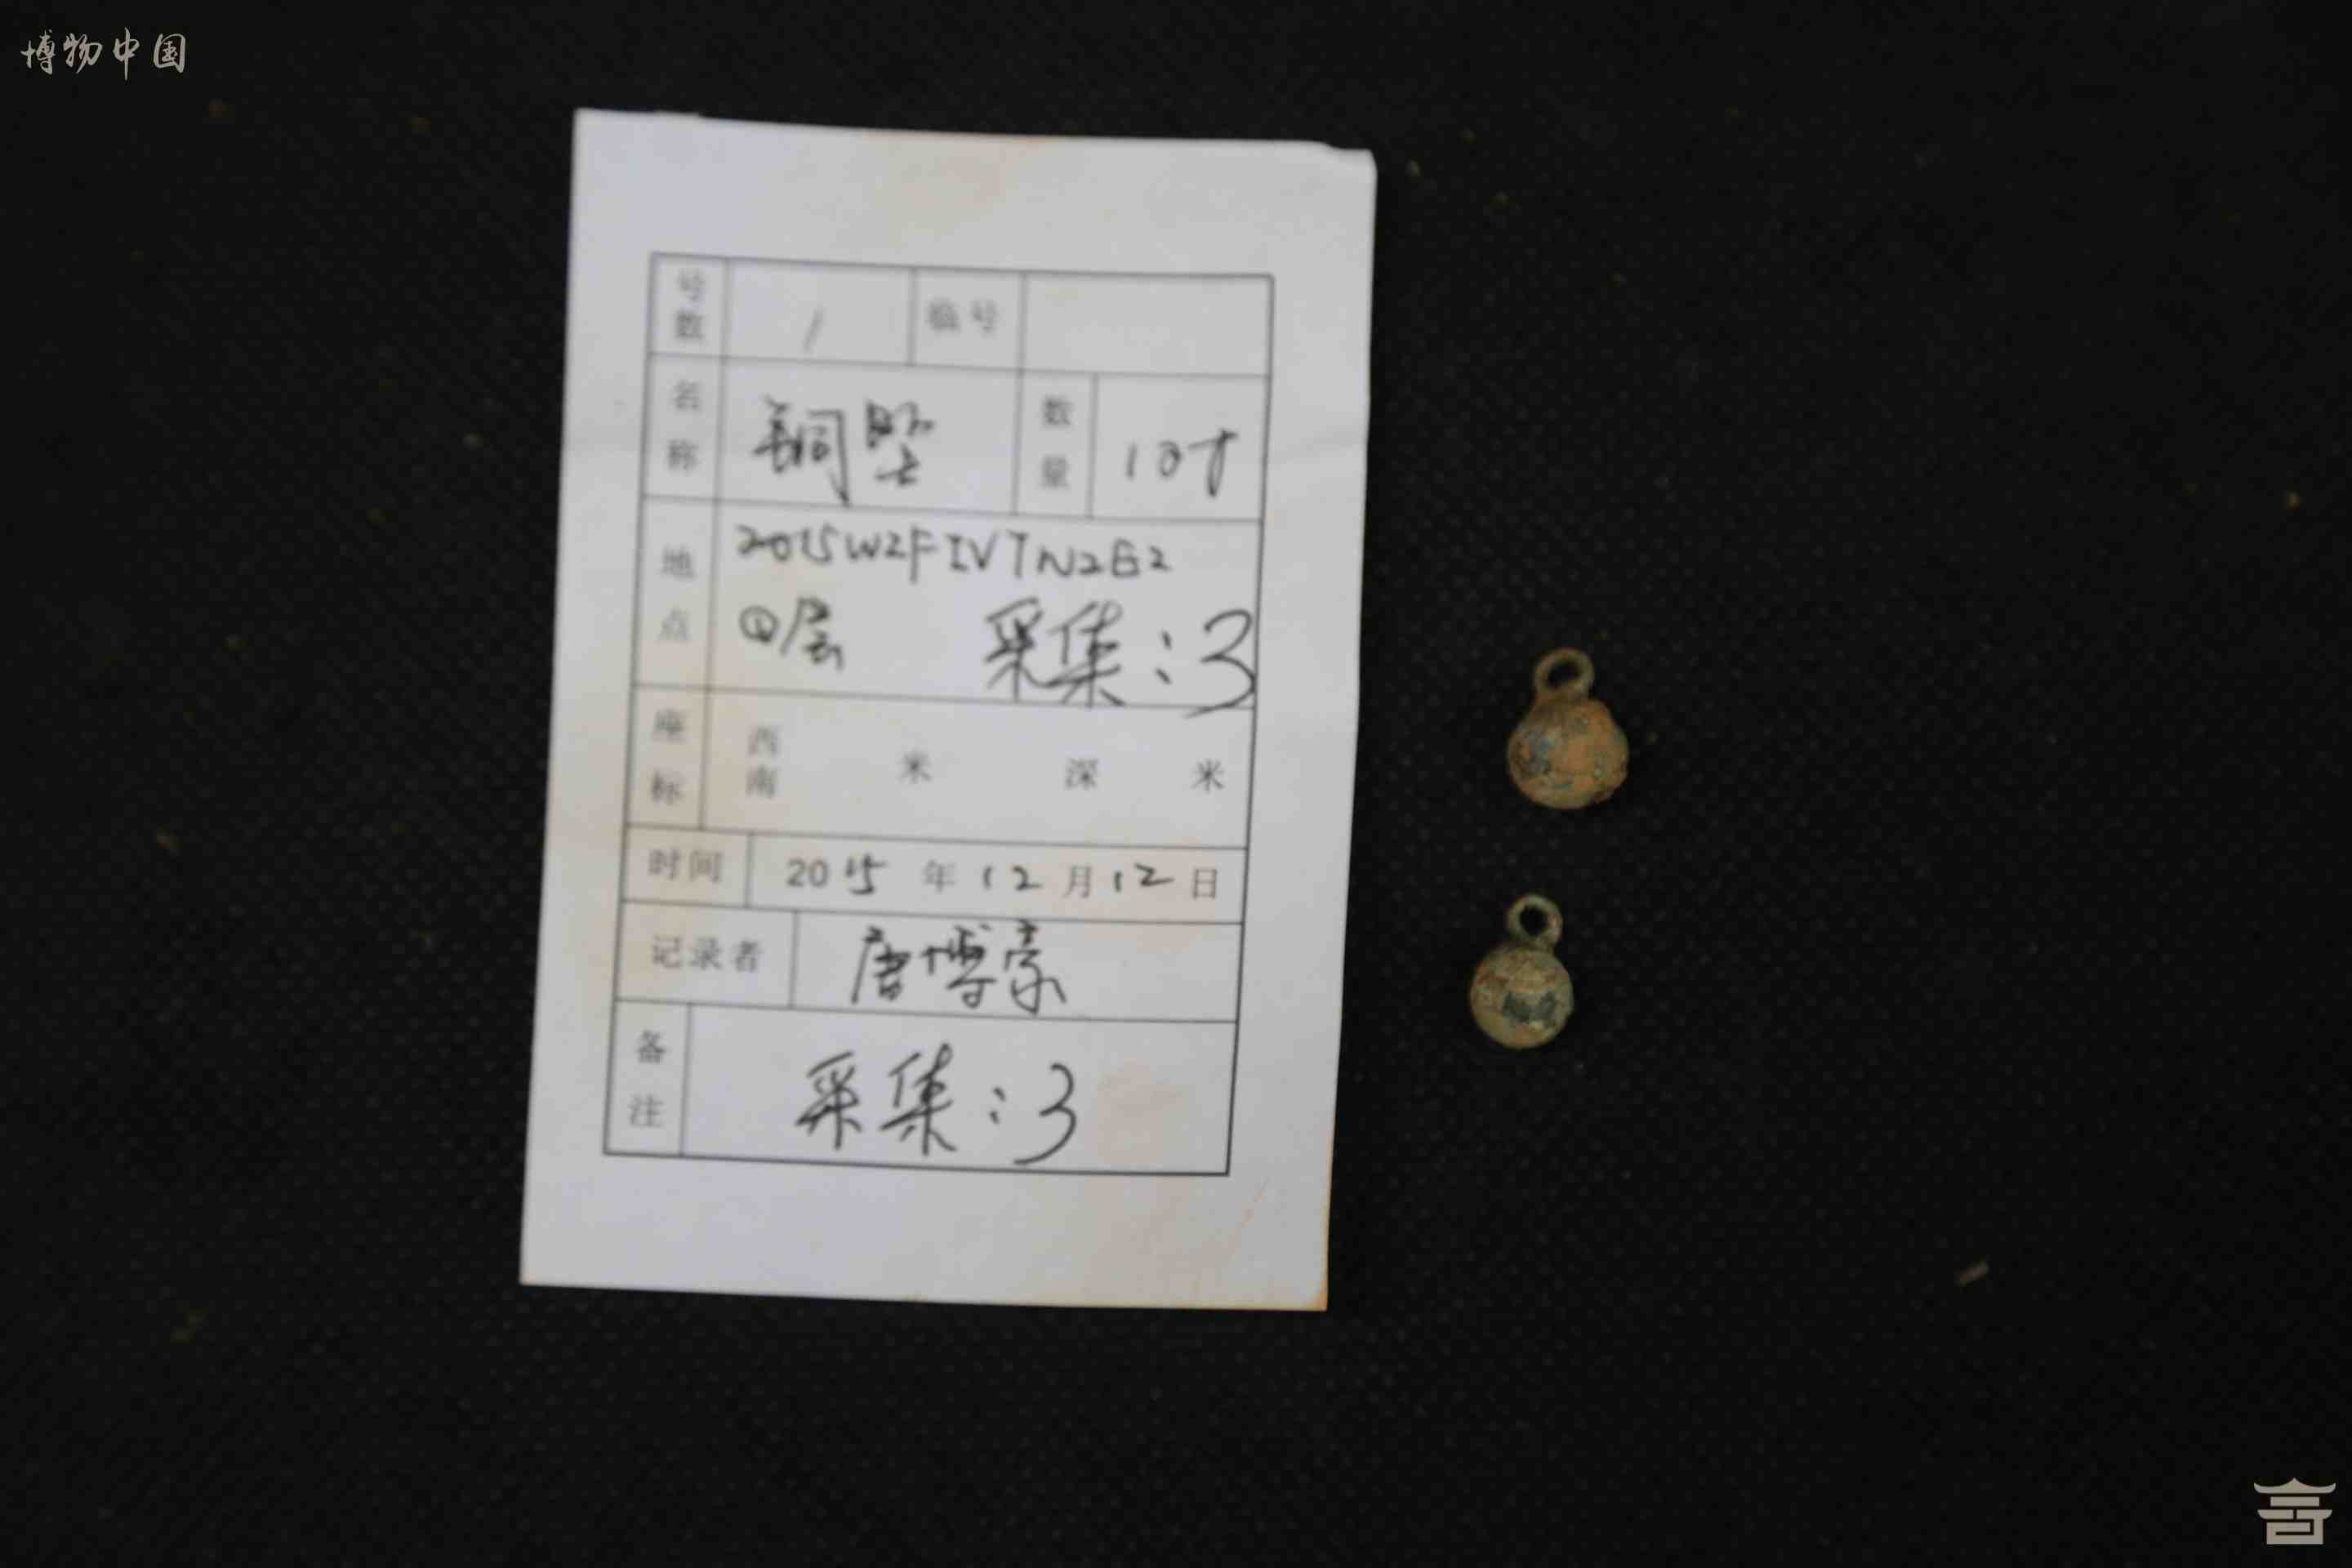 博物中国
号数 1 临号
名称 铜 数量 1
地点 2015WZFIVTN2E2
①层 采集:3
座标 西南 米 深 米
时间 2015年12月12日
记录者 唐博豪
备注 采集:3